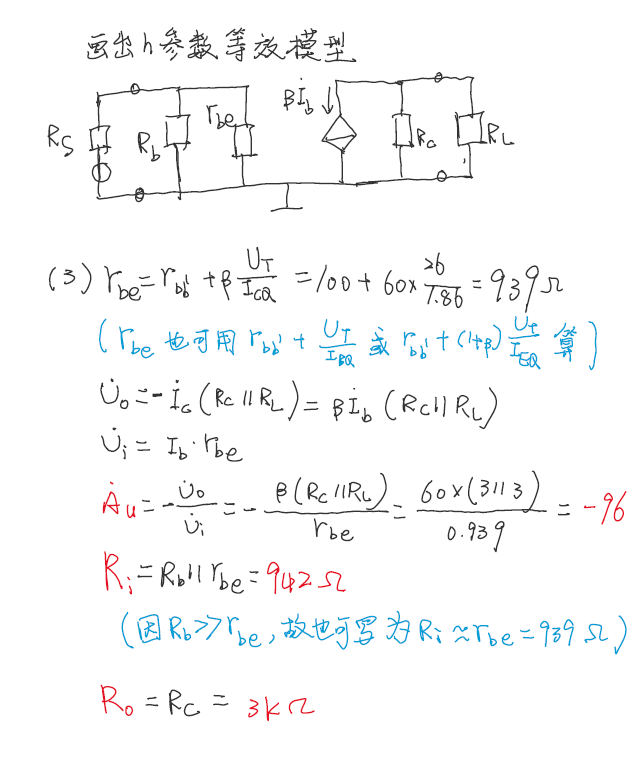 画出h参数等效模型
Rs Rb rbe βİb Rc RL
(3) rbe = rbb' + β UT/ICQ = 100 + 60 × 26/1.86 = 939Ω
(rbe 也可用 rbb' + UT/IBQ 或 rbb' + (1+β) UT/IEQ 算)
U̇o = -İc (Rc // RL) = βİb (Rc // RL)
U̇i = Ib · rbe
Ȧu = - U̇o/U̇i = - β(Rc // RL)/rbe = 60×(3 // 3)/0.939 = -96
Ri = Rb // rbe = 942Ω
(因 Rb >> rbe, 故也可写为 Ri ≈ rbe = 939 Ω)
Ro = Rc = 3kΩ